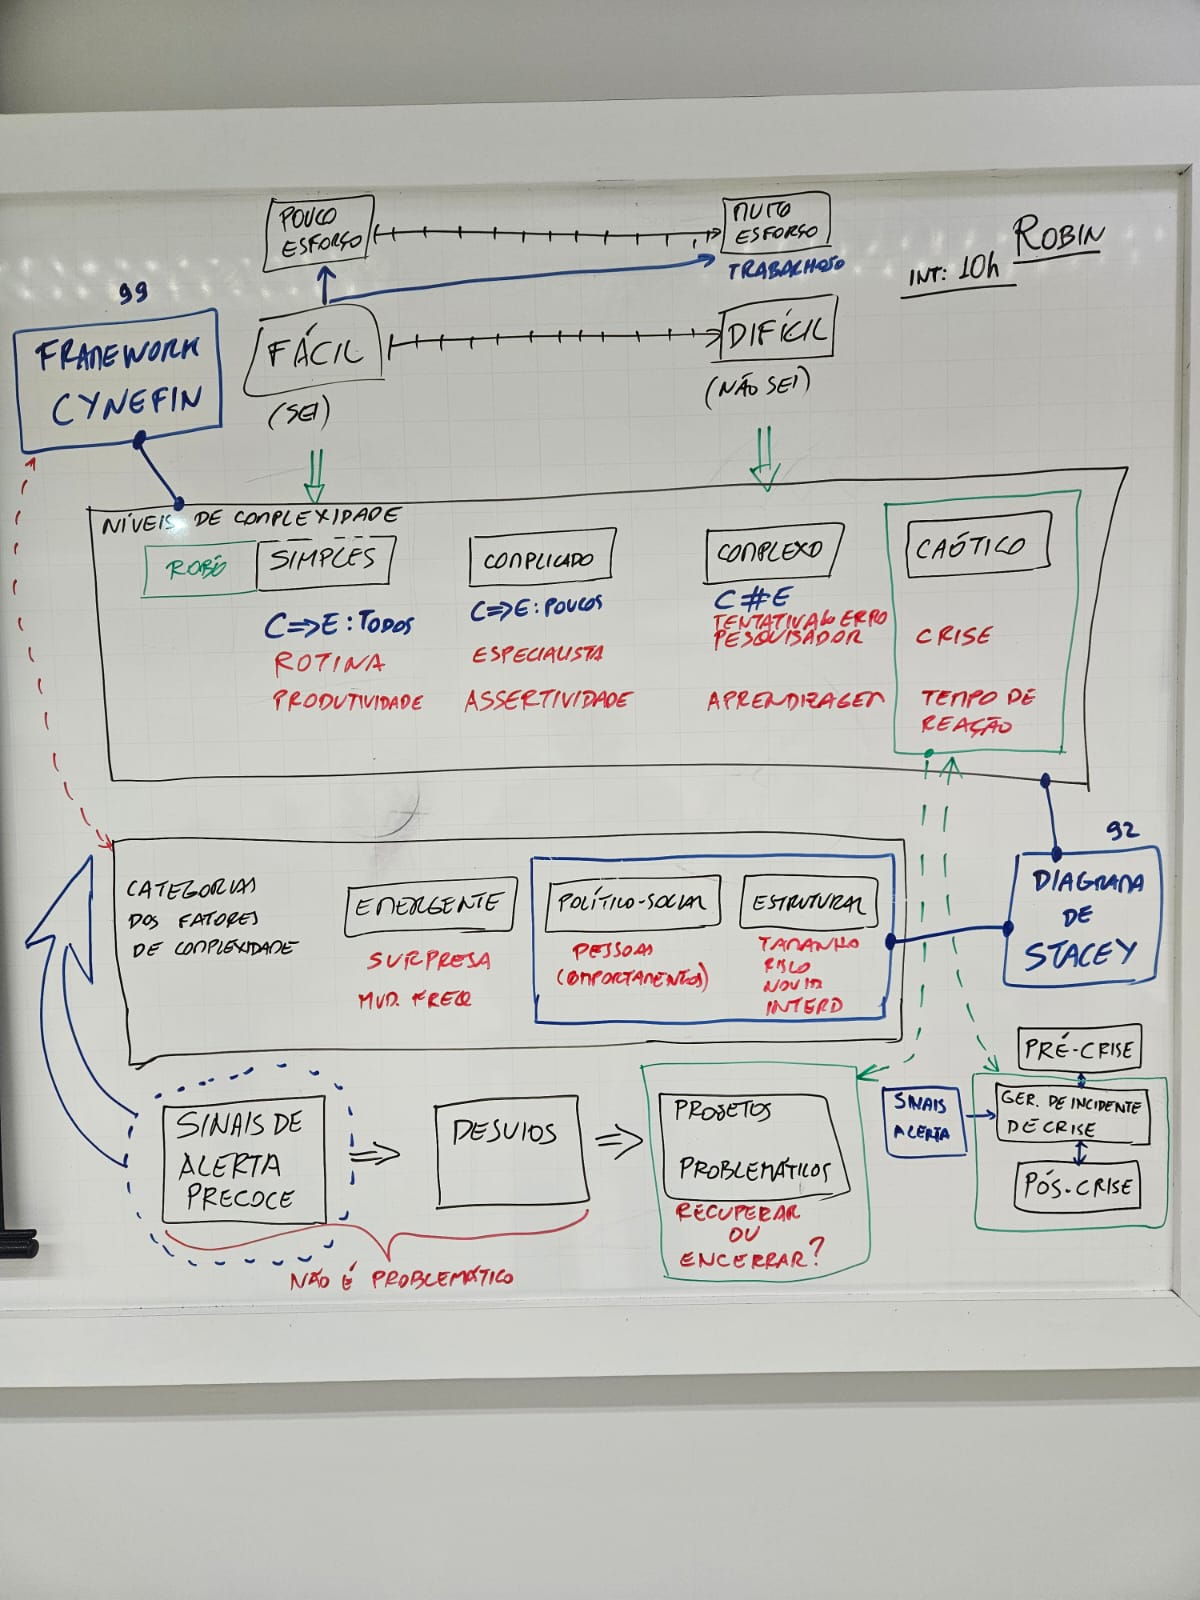 POUCO
ESFORÇO
MUITO
ESFORÇO
TRABALHOSO
ROBIN
INT: 10h
99
FRAMEWORK
CYNEFIN
FÁCIL
(SEI)
DIFÍCIL
(NÃO SEI)
NÍVEIS DE COMPLEXIDADE
ROBÔ
SIMPLES
C⇒E: TODOS
ROTINA
PRODUTIVIDADE
COMPLICADO
C⇒E: POUCOS
ESPECIALISTA
ASSERTIVIDADE
COMPLEXO
C#E
TENTATIVA ERRO
PESQUISADOR
APRENDIZAGEM
CAÓTICO
CRISE
TEMPO DE
REAÇÃO
92
DIAGRAMA
DE
STACEY
CATEGORIAS
DOS FATORES
DE COMPLEXIDADE
EMERGENTE
SURPRESA
MUD. FREQ
POLÍTICO-SOCIAL
PESSOAS
(COMPORTAMENTOS)
ESTRUTURAL
TAMANHO
RISCO
INTERD
SINAIS DE
ALERTA
PRECOCE
DESVIOS
NÃO É PROBLEMÁTICO
PROJETOS
PROBLEMÁTICOS
RECUPERAR
OU
ENCERRAR?
SINAIS
ALERTA
PRÉ-CRISE
GER. DE INCIDENTE
DE CRISE
PÓS-CRISE